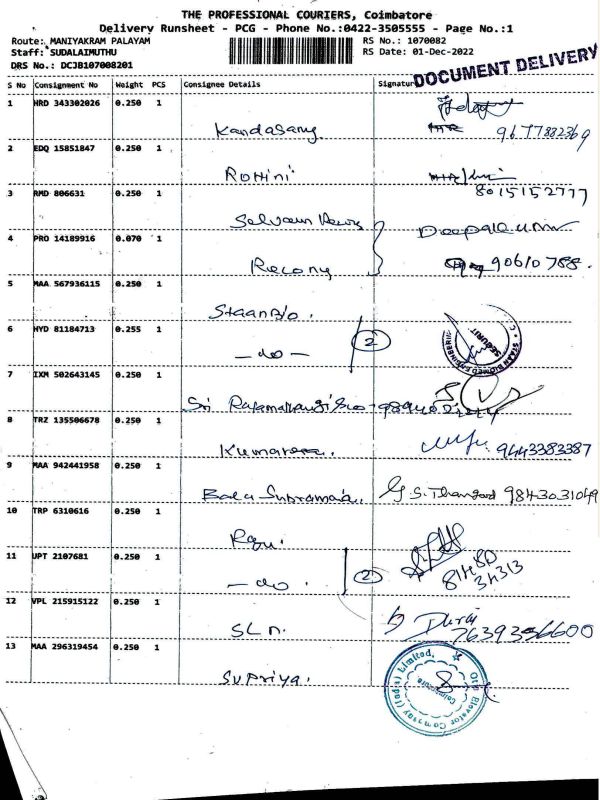 THE PROFESSIONAL COURIERS, Coimbatore
Delivery Runsheet - PCG - Phone No.:0422-3505555 - Page No.:1
Route: MANIYAKRAM PALAYAM RS No.: 1070082
Staff: SUDALAIMUTHU RS Date: 01-Dec-2022
DRS No.: DCJB107008201
DOCUMENT DELIVERY
S No Consignment No Weight PCS Consignee Details Signature
1 HRD 343302026 0.250 1
Kandasamy 9677882369
2 EDQ 15851847 0.250 1
Rohini
3 RMD 806631 0.250 1 8015152777
Selvam
4 PRO 14189916 0.070 1 Deepak
90610788.
5 MAA 567936115 0.250 1
6 HYD 81184713 0.255 1
- do - 2
7 IXM 502643145 0.250 1
Sri
8 TRZ 135506678 0.250 1
9443383387
9 MAA 942441958 0.250 1
Bala G.S. 9843031049
10 TRP 6310616 0.250 1
Raju.
11 UPT 2107681 0.250 1
- do - 2 34313
12 VPL 215915122 0.250 1
SLN. Durai
13 MAA 296319454 0.250 1
Supriya.
Otis Elevator Company (India) Limited,
Coimbatore